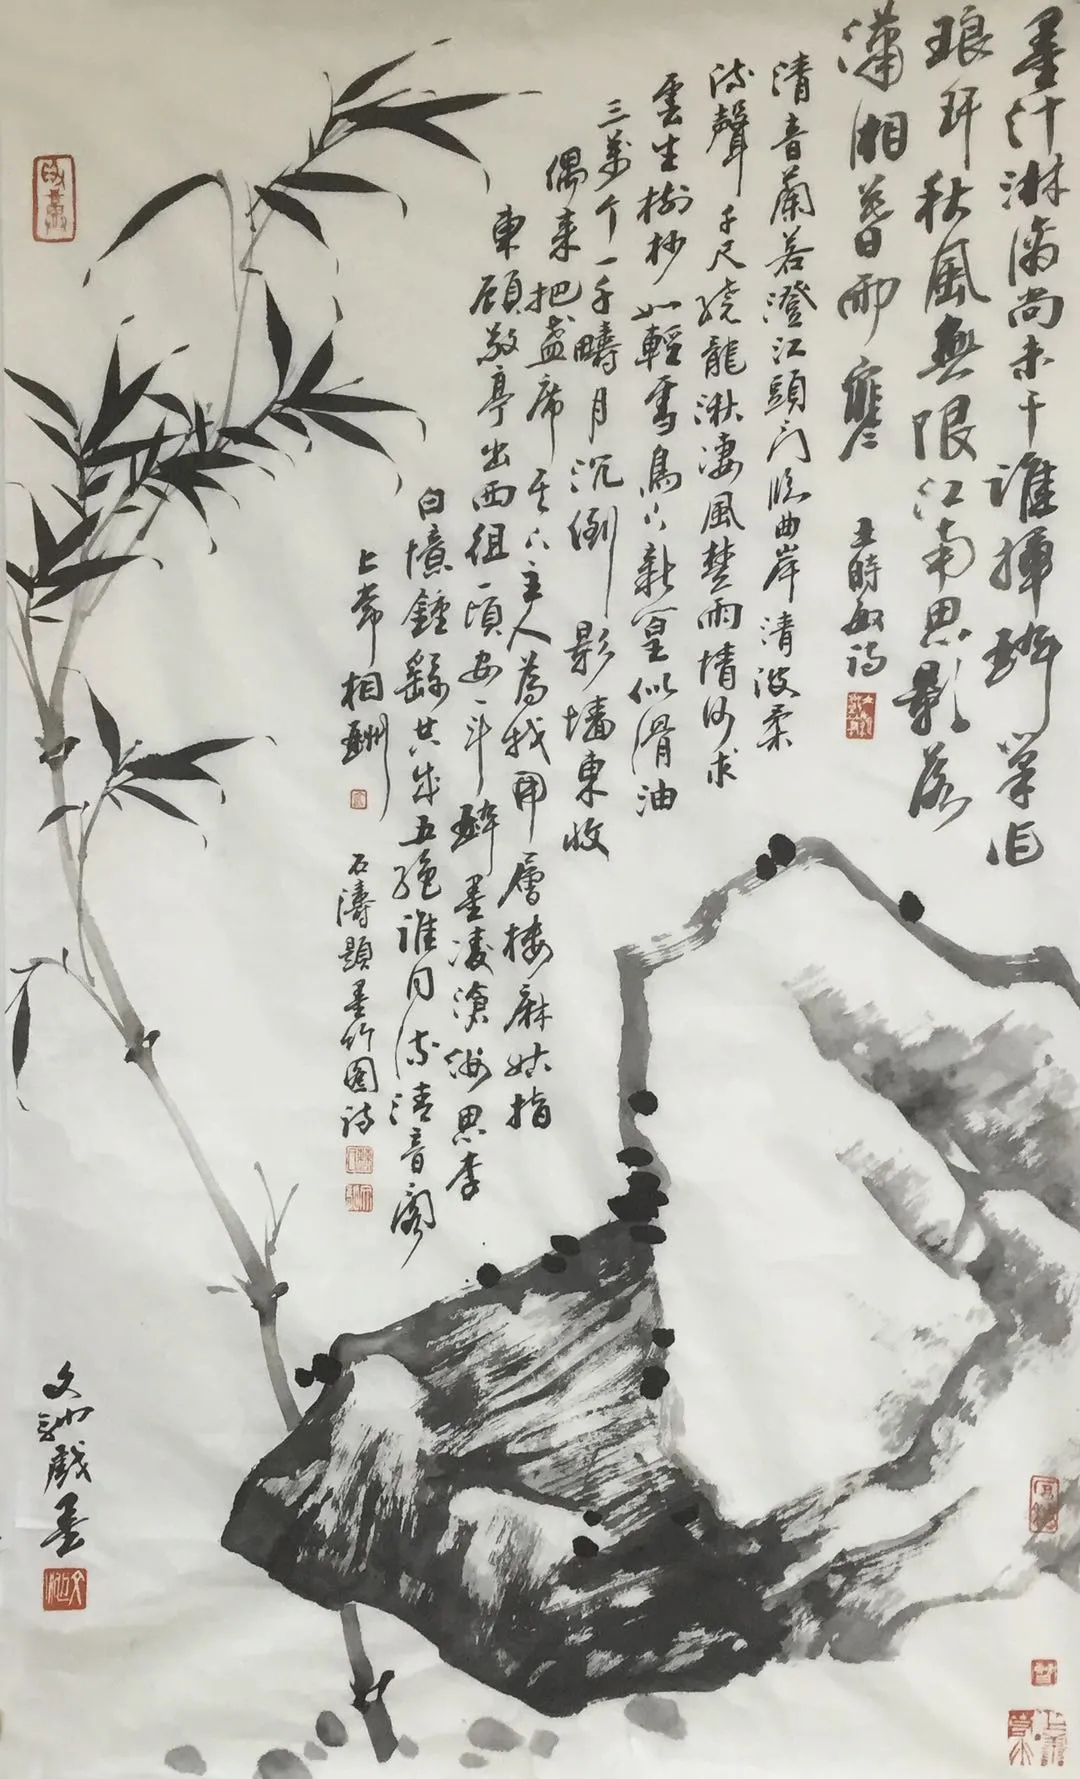 墨汁淋漓尚未干誰揮醉筆
琅玕秋風無限江南思影落
瀟湘暮雨寒
王時敏詩
清音蘭若澄江頭門临曲岸清波柔
流聲千尺繞龍湫淒風楚雨情何求
雲生樹杪如輕雪新篁似滑油
三萬个一千疇月沉倒影墻東收
偶来把盏席其下主人為我開層楼麻姑指
東顧敬亭出西徂一頃安一斗醉墨凌滄海思李
白憶鍾繇共成五絕誰同流清音閣
上常相酬
石濤題墨竹圖詩
文戲墨